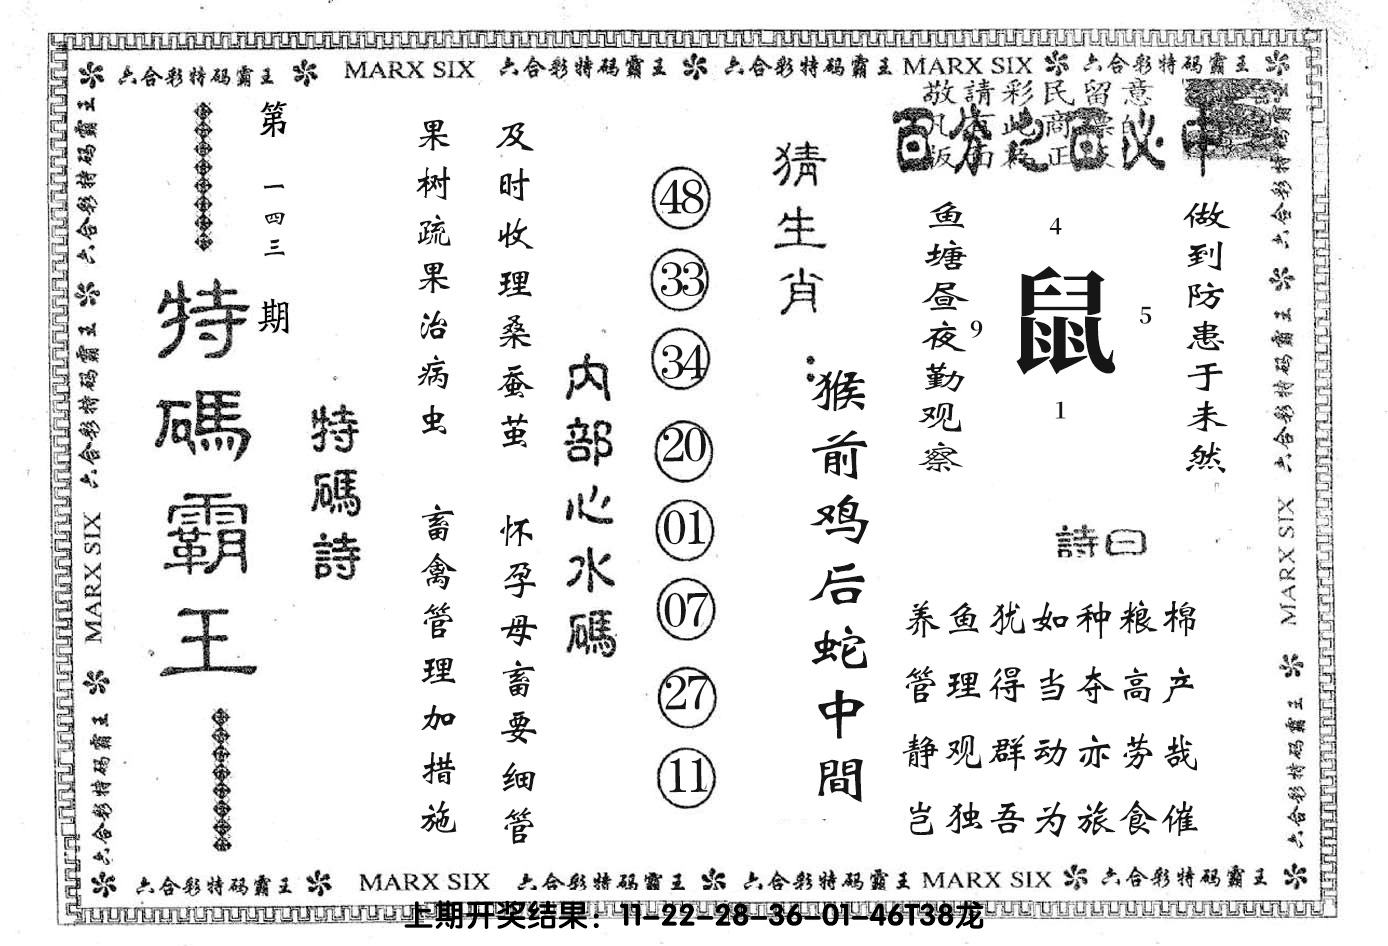 六合彩特码霸王 MARX SIX 六合彩特码霸王 六合彩特码霸王 MARX SIX 六合彩特码霸王
敬請彩民留意
百分之百必中
第一四三期
特碼霸王
特碼詩
果树疏果治病虫 畜禽管理加措施
及时收理桑蚕茧 怀孕母畜要细管
内部心水碼
48
33
34
20
01
07
27
11
猜生肖:
猴前鸡后蛇中間
鱼塘昼夜勤观察
4
9
鼠
5
1
做到防患于未然
詩曰
养鱼犹如种粮棉
管理得当夺高产
静观群动亦劳哉
岂独吾为旅食催
六合彩特码霸王 MARX SIX 六合彩特码霸王
六合彩特码霸王 MARX SIX 六合彩特码霸王
六合彩特码霸王 MARX SIX 六合彩特码霸王 六合彩特码霸王 MARX SIX 六合彩特码霸王
上期开奖结果：11-22-28-36-01-46T38龙